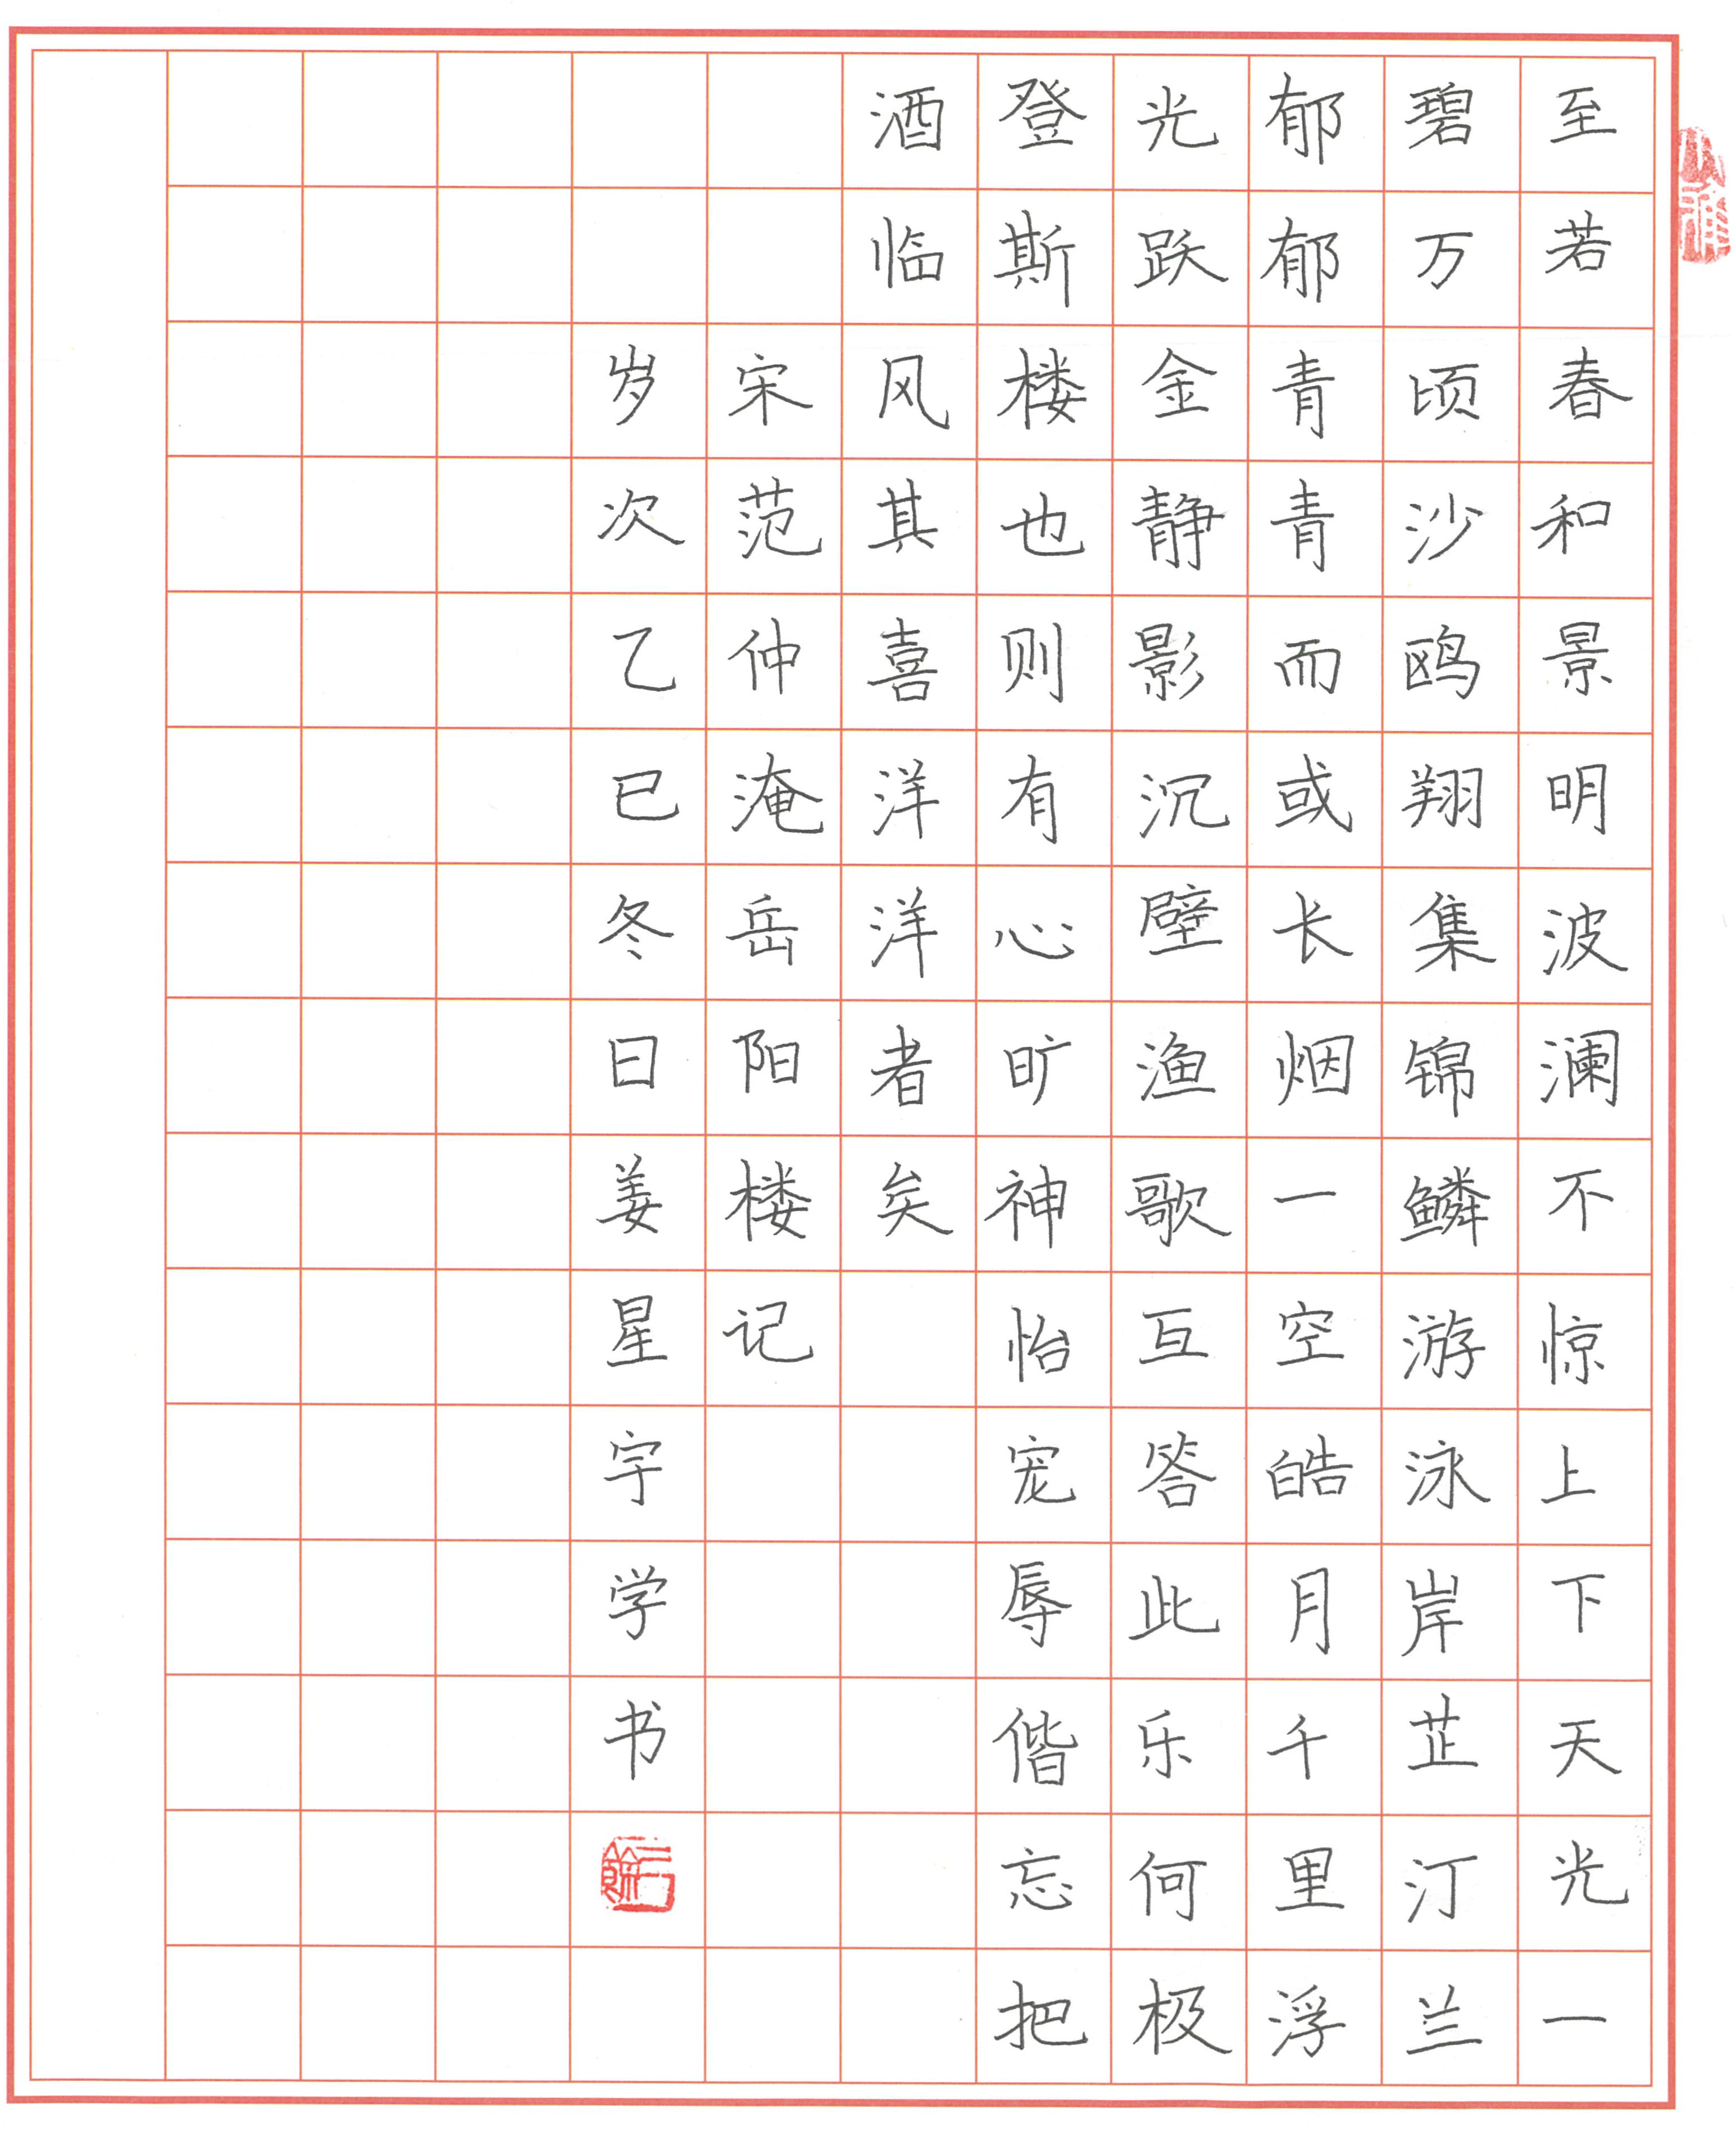 至若春和景明波澜不惊上下天光一
碧万顷沙鸥翔集锦鳞游泳岸芷汀兰
郁郁青青而或长烟一空皓月千里浮
光跃金静影沉壁渔歌互答此乐何极
登斯楼也则有心旷神怡宠辱偕忘把
酒临风其喜洋洋者矣
宋范仲淹岳阳楼记
岁次乙巳冬日姜星宇学书